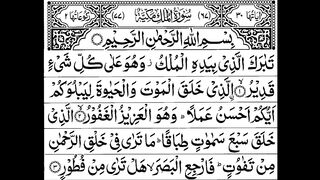 اٰيَاتُهَا ٣٠ (٦٧) سُوْرَةُ الْمُلْكِ مَكِّيَّةٌ (٧٧) رُكُوْعَاتُهَا ٢
بِسْمِ اللّٰهِ الرَّحْمٰنِ الرَّحِيْمِ
تَبٰرَكَ الَّذِيْ بِيَدِهِ الْمُلْكُ وَهُوَ عَلٰى كُلِّ شَيْءٍ
قَدِيْرُ ۙ الَّذِيْ خَلَقَ الْمَوْتَ وَالْحَيٰوةَ لِيَبْلُوَكُمْ
اَيُّكُمْ اَحْسَنُ عَمَلًا ؕ وَهُوَ الْعَزِيْزُ الْغَفُوْرُ ۙ الَّذِيْ
خَلَقَ سَبْعَ سَمٰوٰتٍ طِبَاقًا ؕ مَا تَرٰى فِيْ خَلْقِ الرَّحْمٰنِ
مِنْ تَفٰوُتٍ ؕ فَارْجِعِ الْبَصَرَ ۙ هَلْ تَرٰى مِنْ فُطُوْرٍ ٣